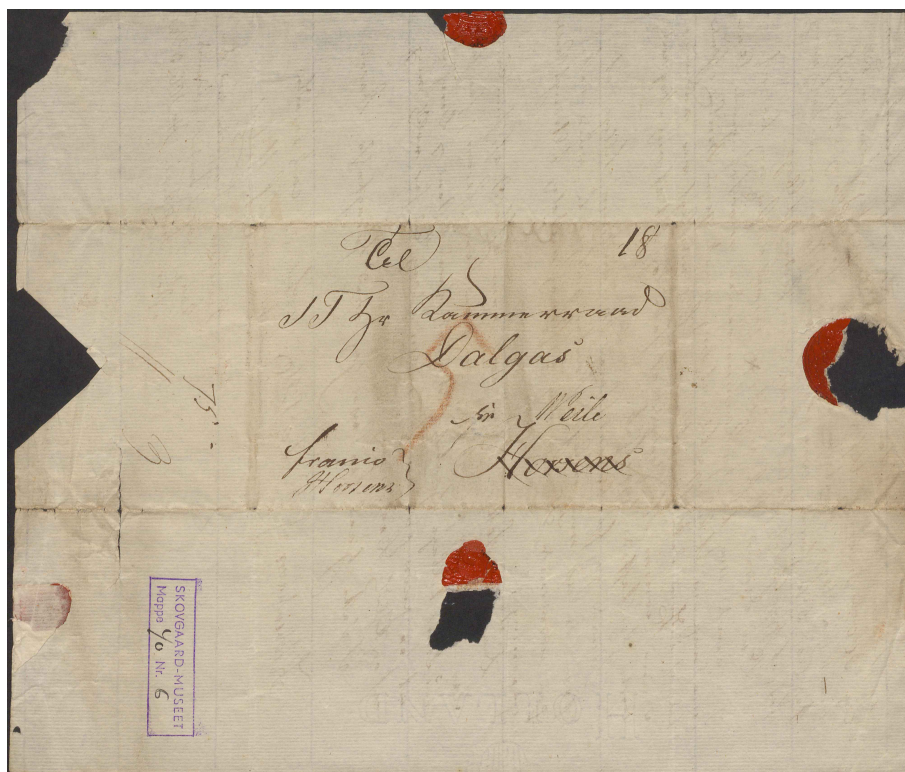 Til
18
ST Hr Kammerraad
Dalgas
Weile
Horsens
franco
Horsens
75.
SKOVGAARD-MUSEET
Mappe 40 Nr. 6